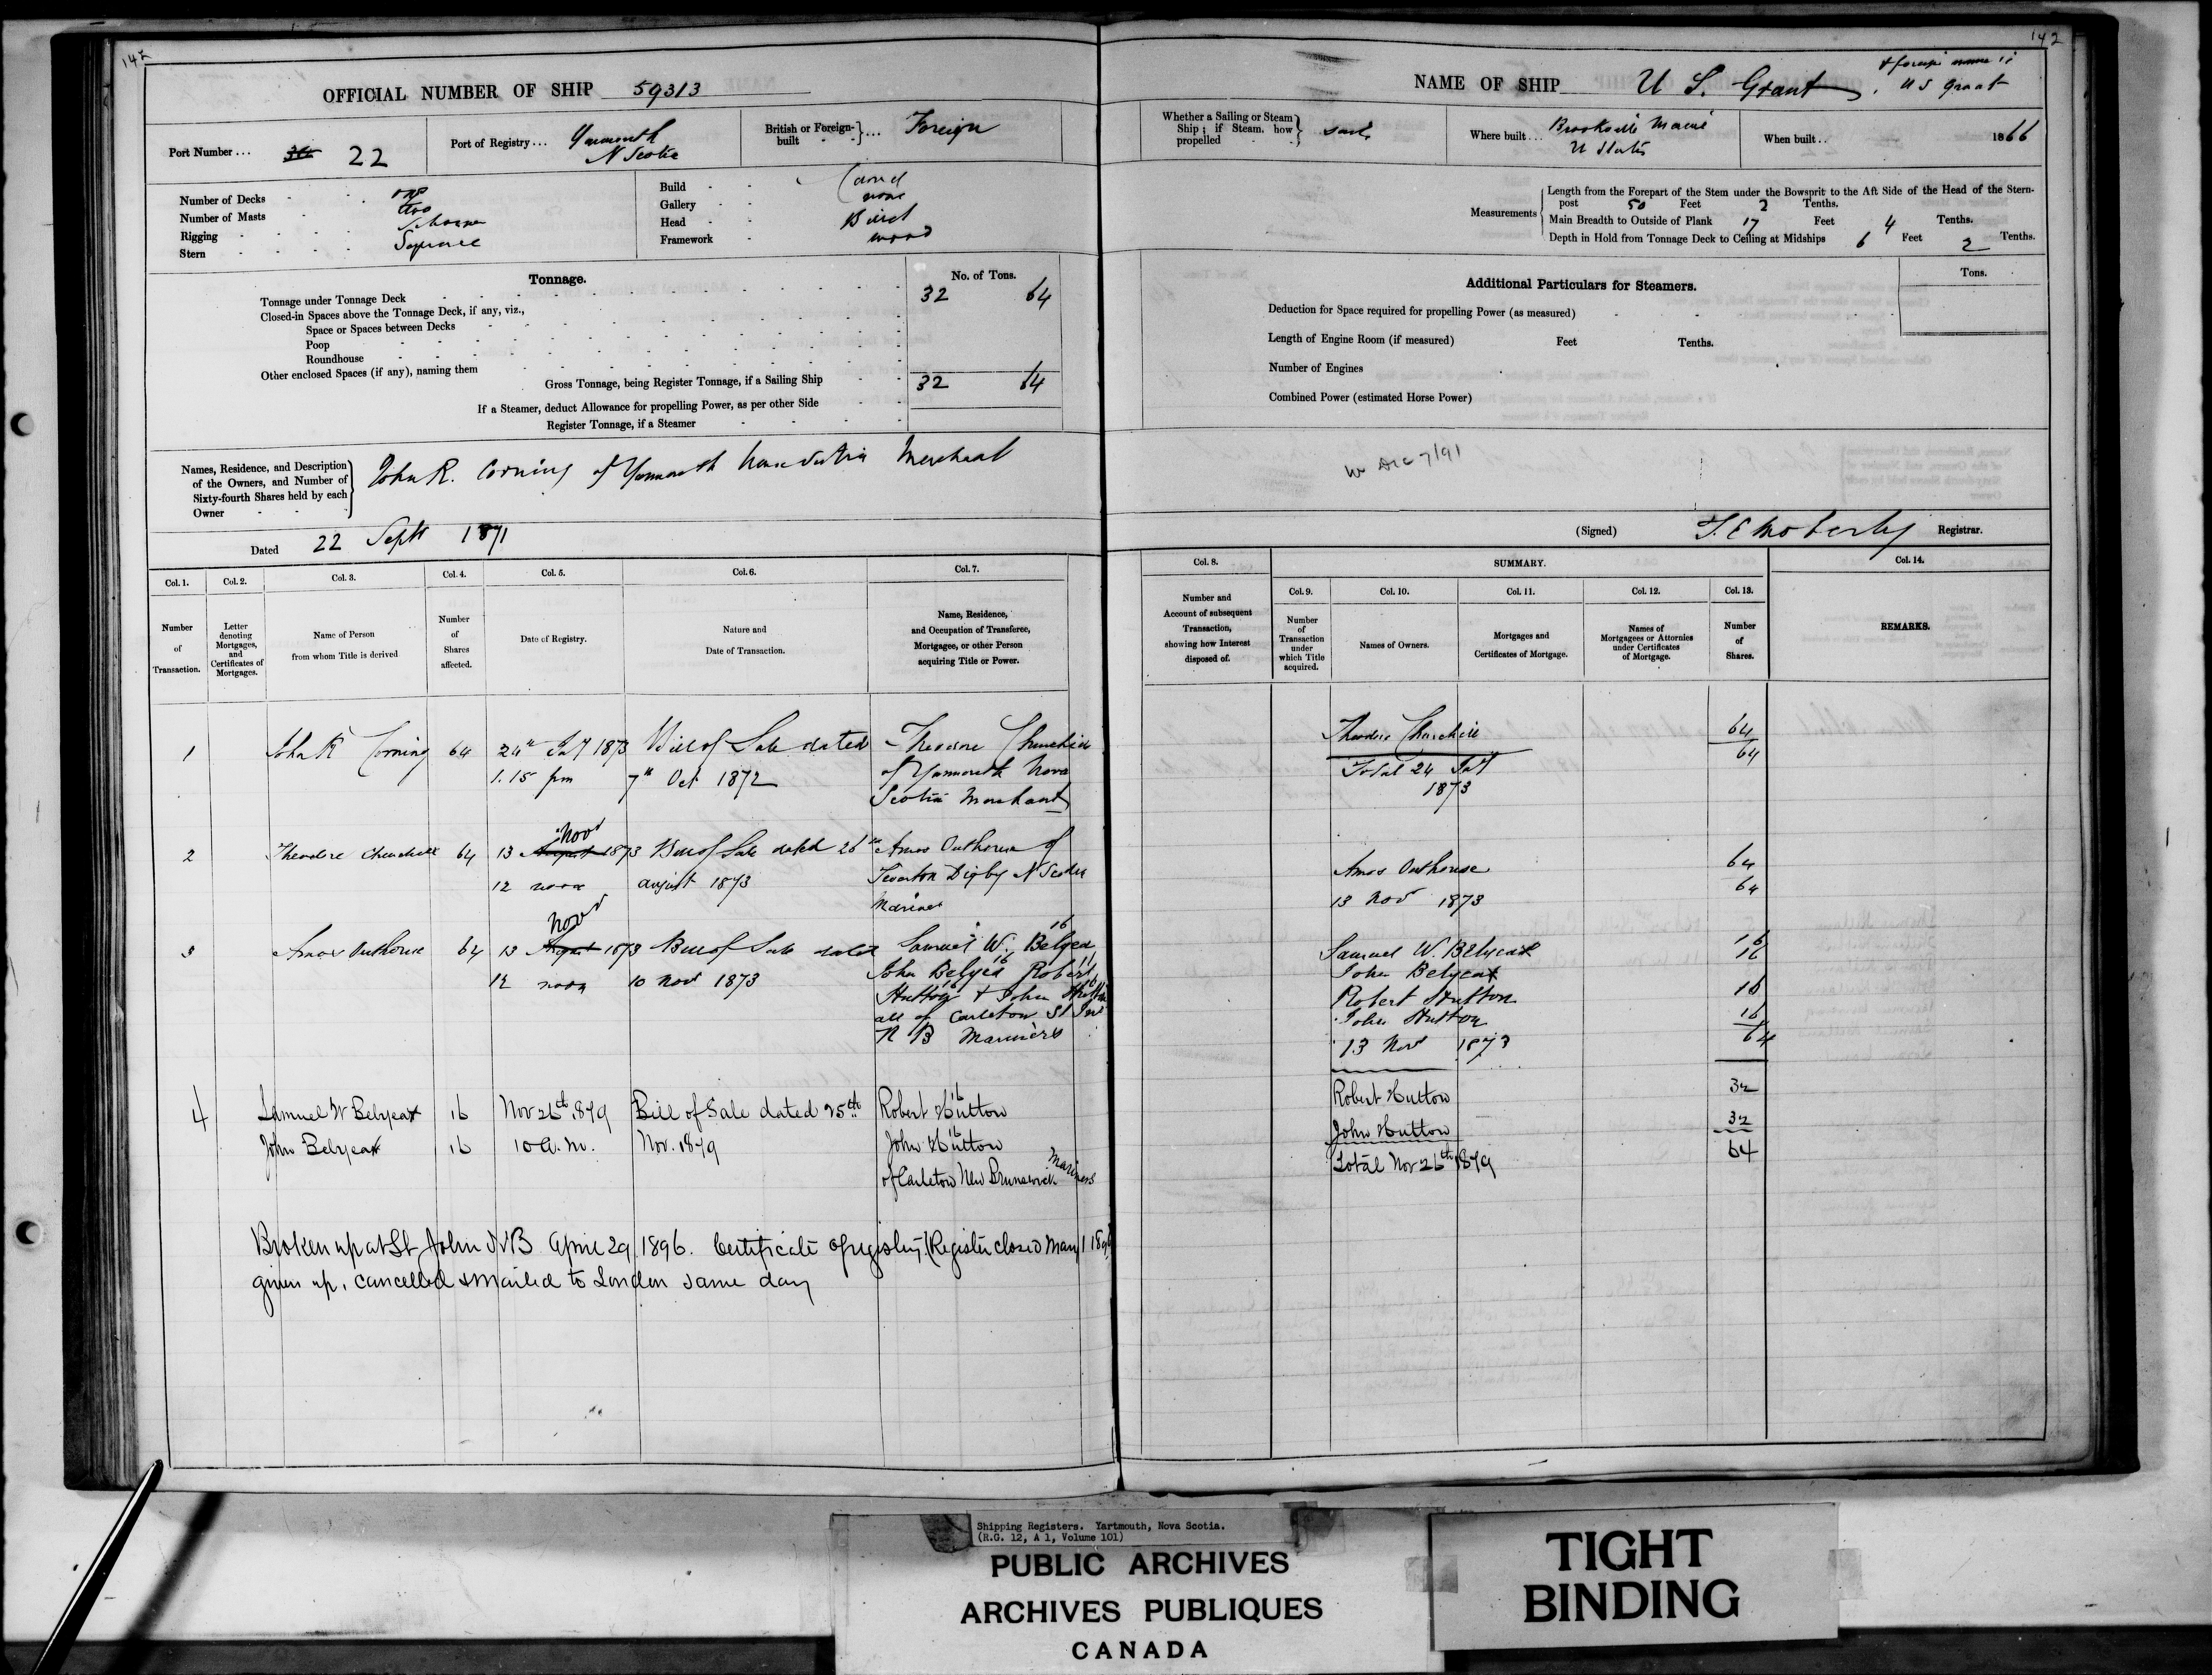 142
OFFICIAL NUMBER OF SHIP 59313
Port Number ... 22
Port of Registry ... Yarmouth
N Scotia
British or Foreign-built } ... Foreign
Number of Decks one
Number of Masts two
Rigging Schooner
Stern Square
Build Carvel
Gallery none
Head Billet
Framework wood
Tonnage.
No. of Tons.
Tonnage under Tonnage Deck 32 64
Closed-in Spaces above the Tonnage Deck, if any, viz.,
Space or Spaces between Decks
Poop
Roundhouse
Other enclosed Spaces (if any), naming them
Gross Tonnage, being Register Tonnage, if a Sailing Ship 32 64
If a Steamer, deduct Allowance for propelling Power, as per other Side
Register Tonnage, if a Steamer
Names, Residence, and Description of the Owners, and Number of Sixty-fourth Shares held by each Owner
John R. Corning of Yarmouth Nova Scotia Merchant
Dated 22 Sept 1871
Col. 1. Col. 2. Col. 3. Col. 4. Col. 5. Col. 6. Col. 7.
Number of Transaction.
Letter denoting Mortgages, and Certificates of Mortgages.
Name of Person from whom Title is derived
Number of Shares affected.
Date of Registry.
Nature and Date of Transaction.
Name, Residence, and Occupation of Transferee, Mortgagee, or other Person acquiring Title or Power.
1 John R Corning 64 24th 1873 Bill of Sale dated Theodore Churchill
1.15 pm 7th Oct 1872 of Yarmouth Nova
Scotia Merchant
Nov
2 Theodore Churchill 64 13 August 1873 Bill of Sale dated 26th Amos Outhouse of
12 noon august 1873 Tiverton Digby N Scotia
Mariner
Nov
16
3 Amos Outhouse 64 13 August 1873 Bill of Sale dated Samuel W. Belyea
12 noon 10 Nov 1873 John Belyea 16 Robert
Hutton 16 & John Hutton
all of Carleton St
N B Mariners
4 Samuel W Belyea 16 Nov 26th 1879 Bill of Sale dated 25th Robert Hutton 16
John Belyea 16 10 a.m. Nov. 1879 John Hutton 16
of Carleton New Brunswick Mariners
Broken up at St John NB April 29 1896. Certificate of registry (Register closed May 1 1896)
given up, cancelled & mailed to London same day
142
NAME OF SHIP U S. Grant.
& foreign name is
U S Grant
Whether a Sailing or Steam Ship; if Steam, how propelled } Sail
Where built ... Brooksville Maine
U States
When built .. 1866
Measurements
Length from the Forepart of the Stem under the Bowsprit to the Aft Side of the Head of the Stern-
post 50 Feet 2 Tenths.
Main Breadth to Outside of Plank 17 Feet 4 Tenths.
Depth in Hold from Tonnage Deck to Ceiling at Midships 6 Feet 2 Tenths.
Additional Particulars for Steamers.
Tons.
Deduction for Space required for propelling Power (as measured)
Length of Engine Room (if measured) Feet Tenths.
Number of Engines
Combined Power (estimated Horse Power)
7/91
(Signed) T. E Moberly Registrar.
Col. 8. SUMMARY. Col. 14.
Col. 9. Col. 10. Col. 11. Col. 12. Col. 13.
Number and Account of subsequent Transaction, showing how Interest disposed of.
Number of Transaction under which Title acquired.
Names of Owners.
Mortgages and Certificates of Mortgage.
Names of Mortgagees or Attornies under Certificates of Mortgage.
Number of Shares.
REMARKS.
Theodore Churchill 64
Total 24 64
1873
Amos Outhouse 64
13 Nov 1873 64
Samuel W. Belyea 16
John Belyea 16
Robert Hutton 16
John Hutton 16
13 Nov 1873 64
Robert Hutton 32
John Hutton 32
Total Nov 26th 1879 64
Shipping Registers. Yartmouth, Nova Scotia.
(R.G. 12, A 1, Volume 101)
PUBLIC ARCHIVES
ARCHIVES PUBLIQUES
CANADA
TIGHT
BINDING